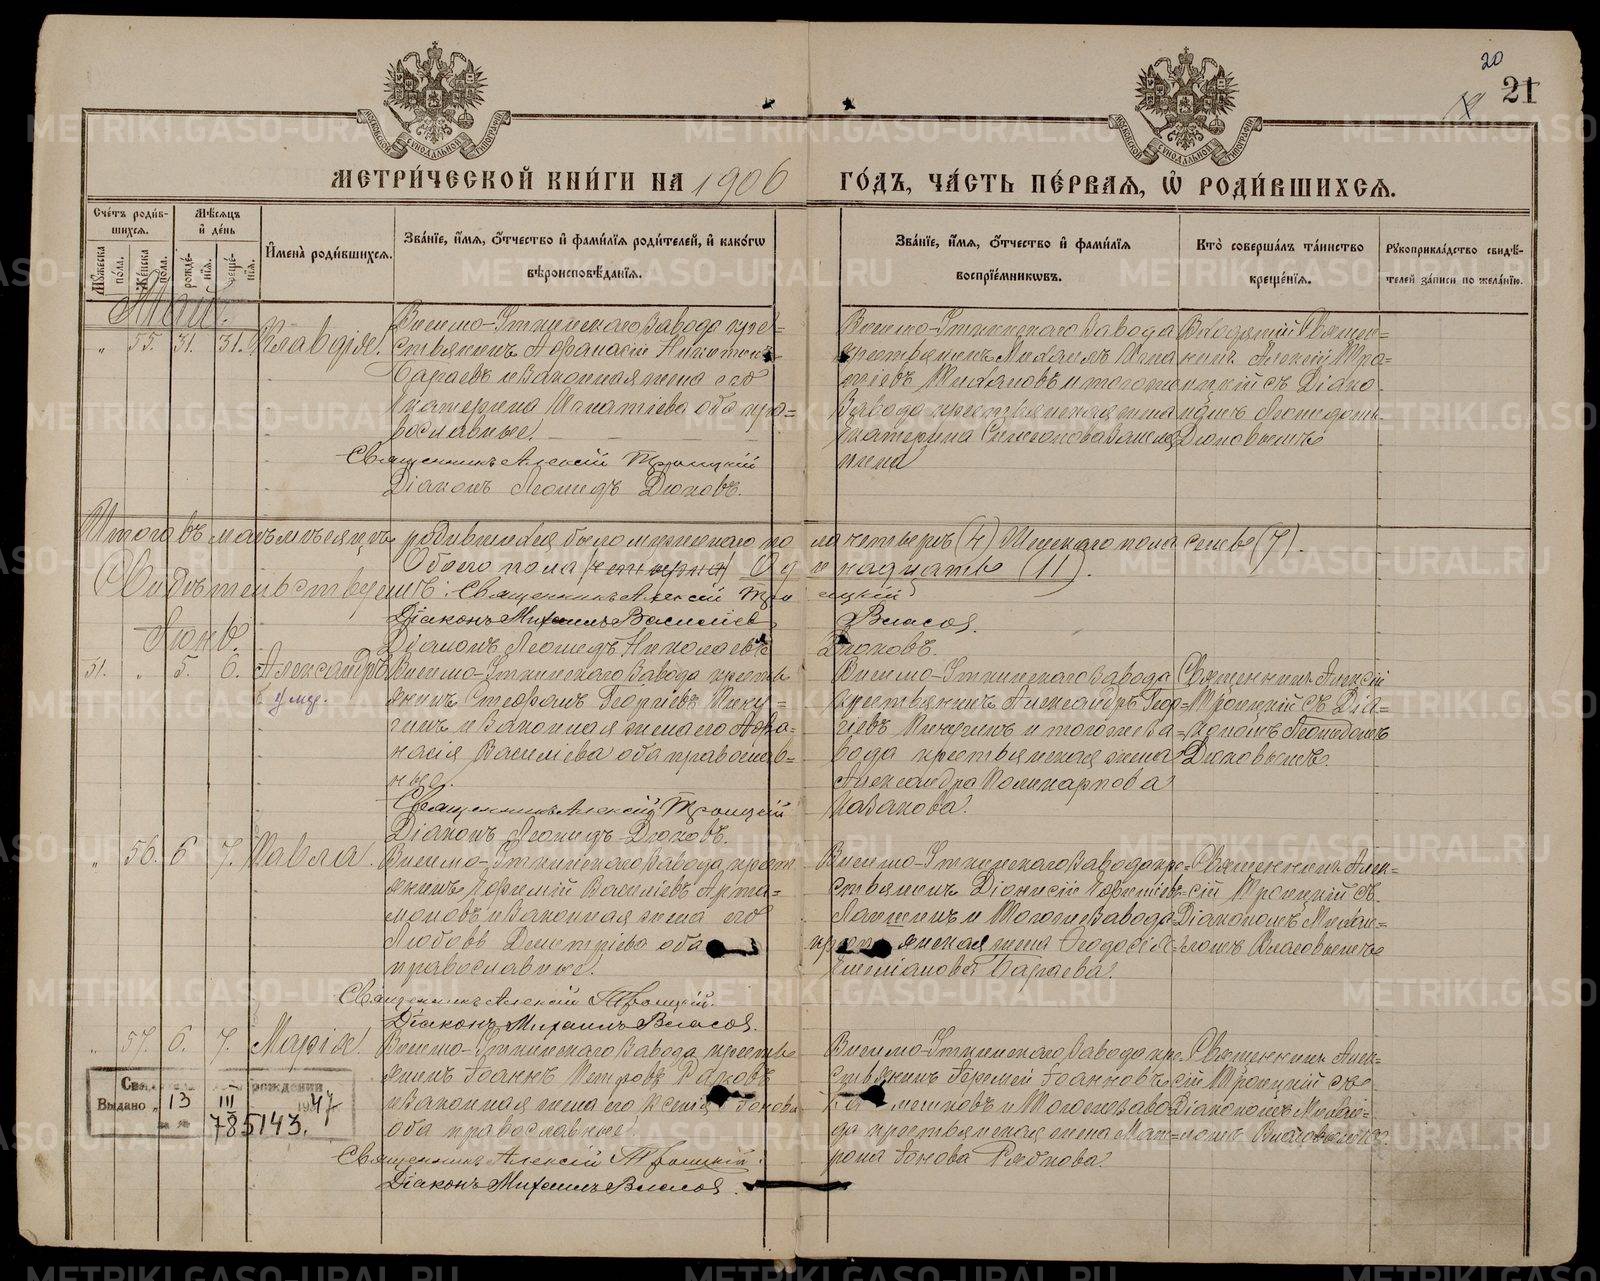 20
21
МЕТРИ́ЧЕСКОЙ КНИ́ГИ НА 1906 ГО́ДЪ, ЧА́СТЬ ПЕ́РВАЯ, Ѽ РОДИ́ВШИХСЯ.
Сче́тъ роди́в-
шихся.
Мѣсяцъ
и де́нь
Имена̀ роди́вшихся.
Зва́нїе, и́мя, ѻ́тчество и фами́лїя роди́телей, и како́гѡ
вѣроисповѣ́данїя.
Зва́нїе, и́мя, ѻ́тчество и фами́лїя
воспрїе́мникѡвъ.
Кто̀ соверша́лъ та́инство
креще́нїя.
Рꙋкоприкла́дство свидѣ́-
телей за́писи по жела́нїю.
Мꙋ́жеска по́ла.
Же́нска по́ла.
рожде́-нїя.
креще́-нїя.
Май.
" 55. 31. 31. Клавдія.
Висимо-Уткинскаго Завода кре-
стьянинъ Афанасій Никитинъ
Бараевъ и законная жена его
Екатерина Игнатіева оба пра-
вославные.
Священникъ Алексій Троицкій
Діаконъ Леонидъ Дюковъ.
Висимо-Уткинскаго Завода
крестьянинъ Михаилъ
и тогоже
Завода крестьянская жена
Екатерина Симеонова
жена
Священ-
никъ Алексій Тро-
ицкій съ Діако-
номъ Леонидомъ
Дюковымъ
Итого въ маѣ мѣсяцѣ родившихся было мужескаго по
ла четверо (4) Женскаго пола семь (7).
Обоего пола Од
инадцать (11).
Свидѣтельствуемъ: Священникъ Алексій Тро
ицкій
Діаконъ Михаилъ Василіев
Власов.
Діаконъ Леонидъ Николаевъ
Дюковъ.
Іюнь.
51. " 5. 6. Александръ
умер.
Висимо-Уткинскаго Завода кресть
янинъ Стефанъ Георгіевъ Мичу-
гинъ и законная жена его Афа-
насія Василіева оба православ-
ные.
Священникъ Алексій Троицкій
Діаконъ Леонидъ Дюковъ.
Висимо-Уткинскаго Завода
крестьянинъ Александръ Геор-
гіевъ и тогоже За-
вода крестьянская жена
Александра Поликарпова
Казакова.
Священникъ Алексій
Троицкій съ Діа-
кономъ Леонидомъ
Дюковымъ.
" 56. 6 7. Павла.
Висимо-Уткинскаго Завода крест
янинъ Ефимій Василіевъ Арта-
моновъ и законная жена его
Любовь Димитріева оба
православные.
Священникъ Алексій Троицкій.
Діаконъ Михаилъ Власов.
Висимо-Уткинскаго Завода кре-
стьянинъ Діонисій
и Тогоже Завода
янская жена Феодосія
Бараева.
Священникъ Алек-
сій Троицкій съ
Діакономъ Михаи-
ломъ Власовымъ
" 57. 6. 7. Марія.
Висимо-Уткинскаго Завода кресть
янинъ Іоаннъ Петровъ
и законная жена его Ксенія Іонова
оба православные.
Священникъ Алексій Троицкій.
Діаконъ Михаилъ Власов.
Висимо-Уткинскаго Завода кре-
стьянинъ Іеремей Іоанновъ
и Тогоже заво
да крестьянская жена Мат-
рона Іонова Рябкова.
Священникъ Алек-
сій Троицкій съ
Діакономъ Михаи-
ломъ Власовымъ.
рождении
Выдано " 13 III 1947
785143.
METRIKI.GASO-URAL.RU